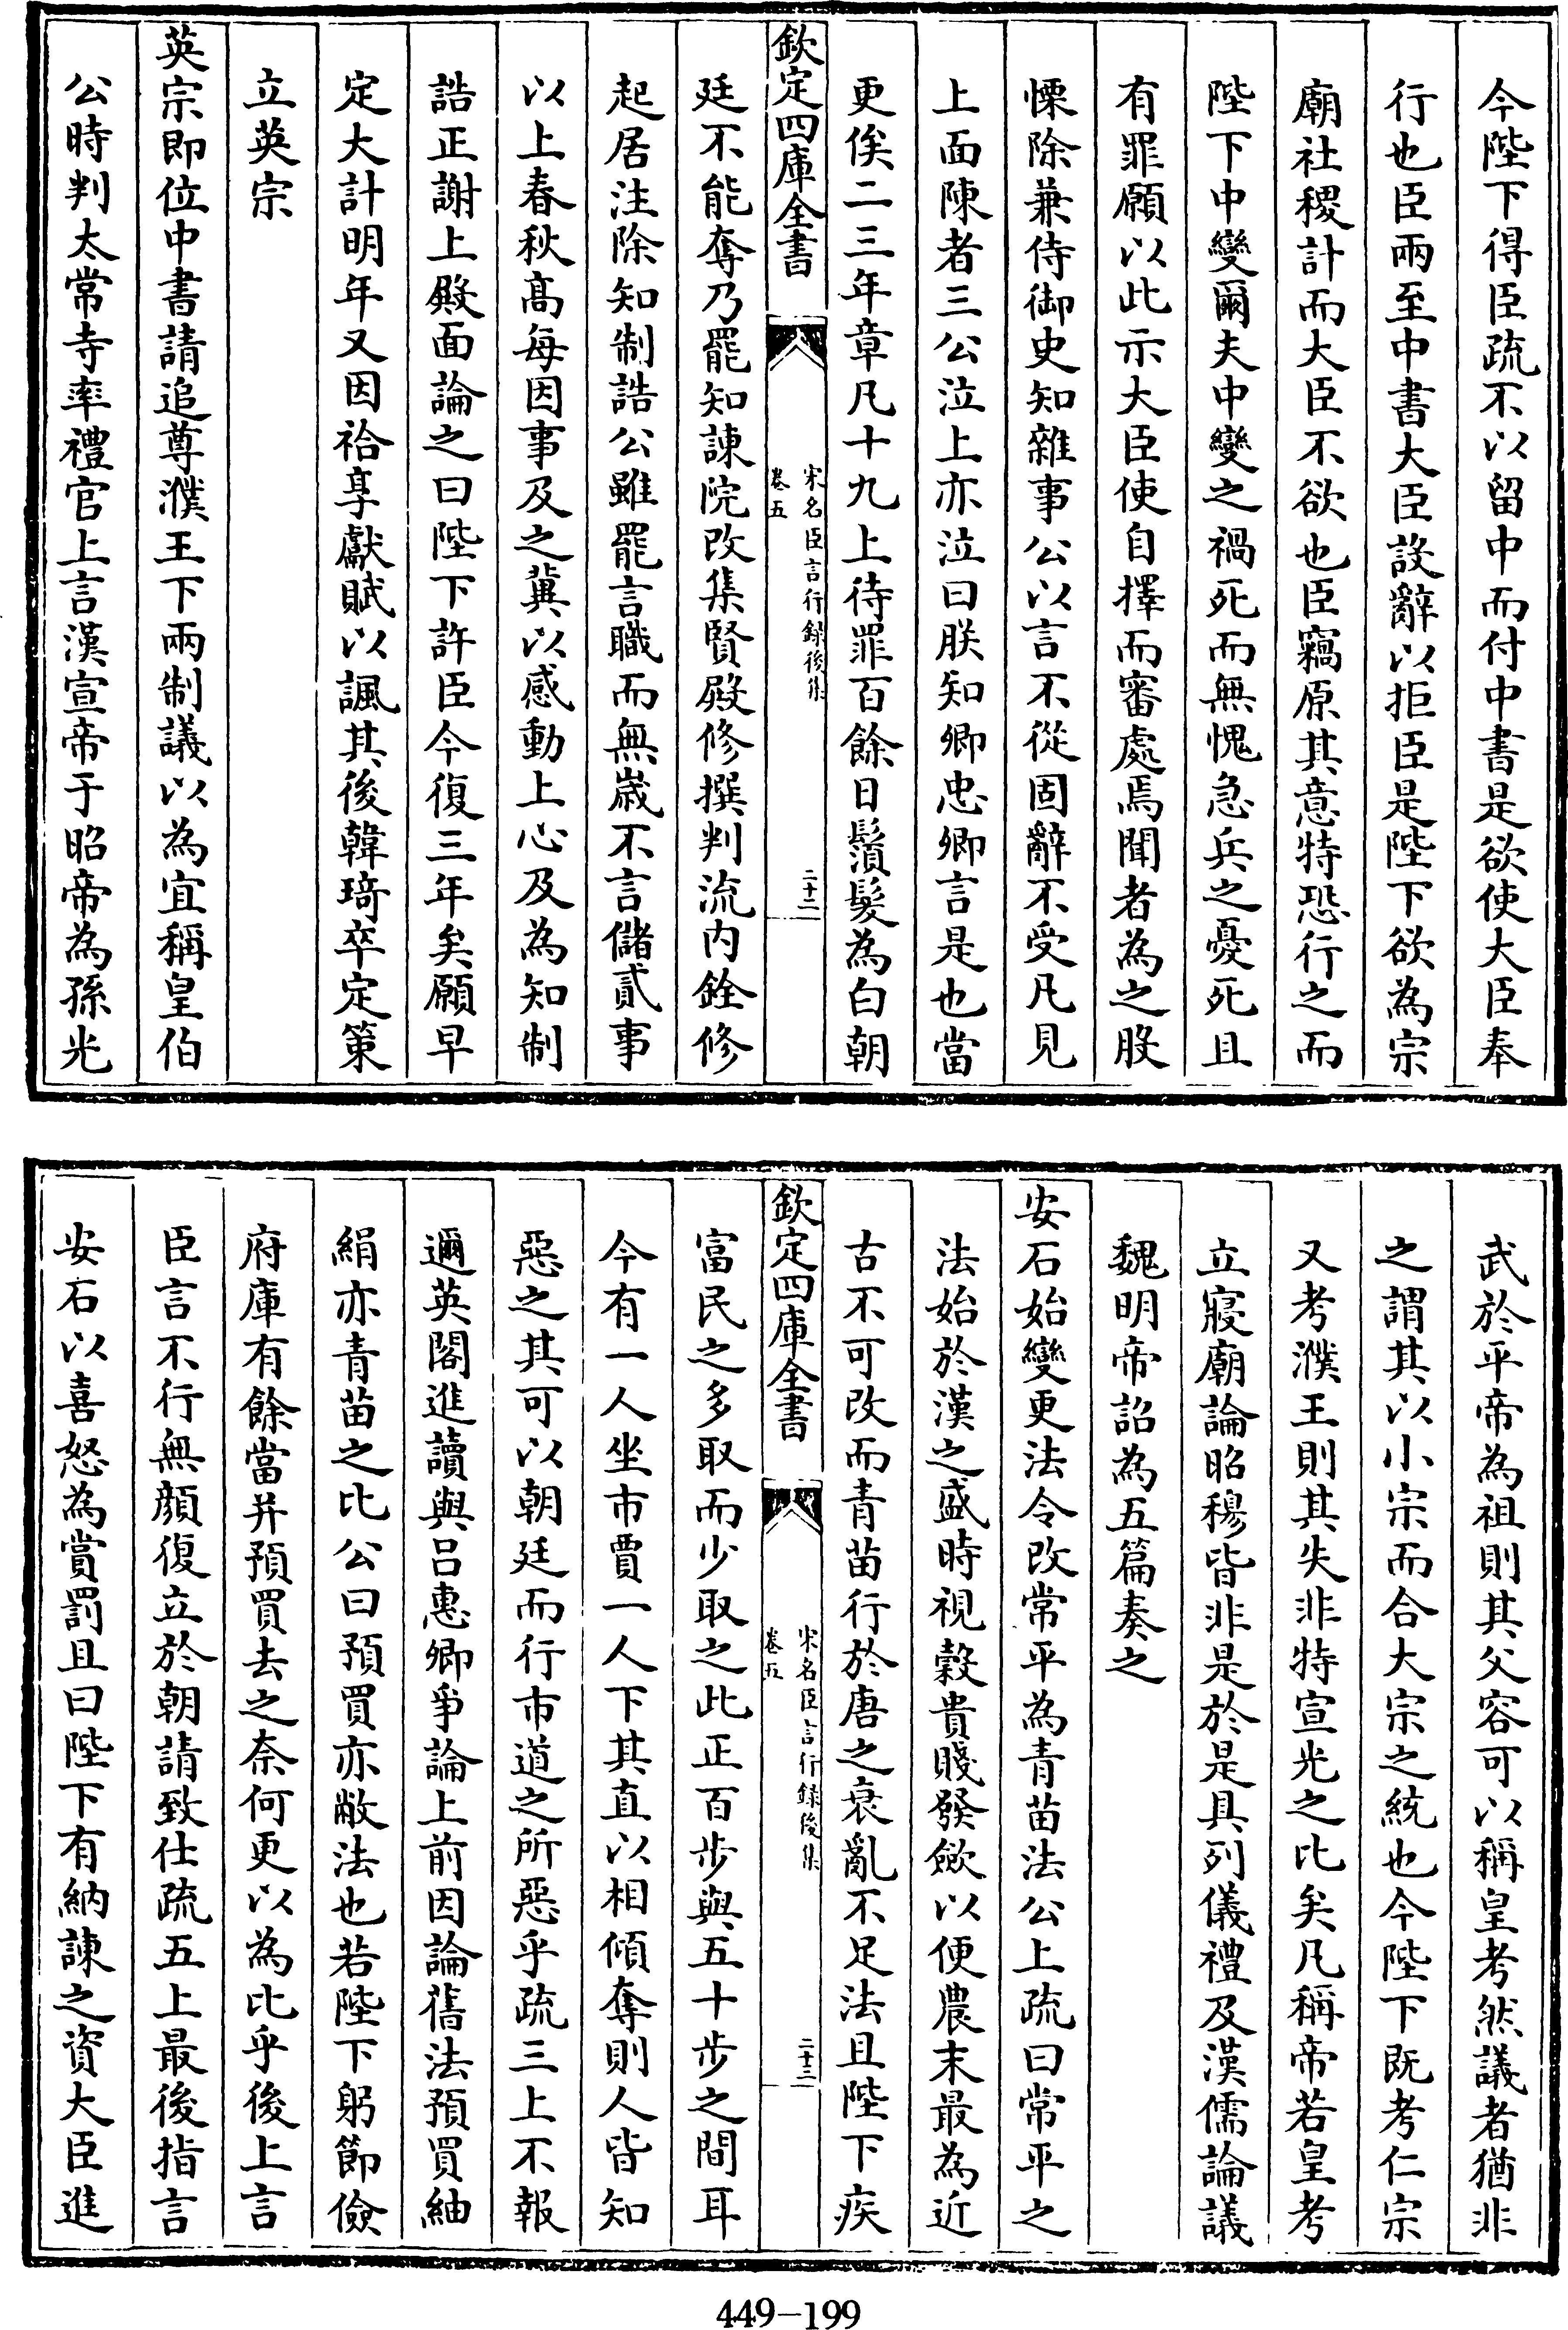 今陛下得臣疏不以留中而付中書是欲使大臣奉
行也臣兩至中書大臣設辭以拒臣是陛下欲為宗
廟社稷計而大臣不欲也臣竊原其意特恐行之而
陛下中變爾夫中變之禍死而無愧急兵之憂死且
有罪願以此示大臣使自擇而審處焉聞者為之股
慄除兼侍御史知雜事公以言不從固辭不受凡見
上面陳者三公泣上亦泣曰朕知卿忠卿言是也當
更俟二三年章凡十九上待罪百餘日鬚髮為白朝
欽定四庫全書
宋名臣言行録後集
卷五
二十二
廷不能奪乃罷知諫院改集賢殿修撰判流内銓修
起居注除知制誥公雖罷言職而無嵗不言儲貳事
以上春秋髙每因事及之冀以感動上心及為知制
誥正謝上殿面論之曰陛下許臣今復三年矣願早
定大計明年又因祫享獻賦以諷其後韓琦卒定策
立英宗
英宗即位中書請追尊濮王下兩制議以為宜稱皇伯
公時判太常寺率禮官上言漢宣帝于昭帝為孫光
武於平帝為祖則其父容可以稱皇考然議者猶非
之謂其以小宗而合大宗之統也今陛下既考仁宗
又考濮王則其失非特宣光之比矣凡稱帝若皇考
立寢廟論昭穆皆非是於是具列儀禮及漢儒論議
魏明帝詔為五篇奏之
安石始變更法令改常平為青苗法公上疏曰常平之
法始於漢之盛時視穀貴賤發斂以便農末最為近
古不可改而青苗行於唐之衰亂不足法且陛下疾
欽定四庫全書
宋名臣言行録後集
卷五
二十三
富民之多取而少取之此正百步與五十步之間耳
今有一人坐市賈一人下其直以相傾奪則人皆知
惡之其可以朝廷而行市道之所惡乎疏三上不報
邇英閣進讀與吕惠卿爭論上前因論舊法預買紬
絹亦青苗之比公曰預買亦敝法也若陛下躬節儉
府庫有餘當并預買去之奈何更以為比乎後上言
臣言不行無顔復立於朝請致仕疏五上最後指言
安石以喜怒為賞罰且曰陛下有納諫之資大臣進
449-199